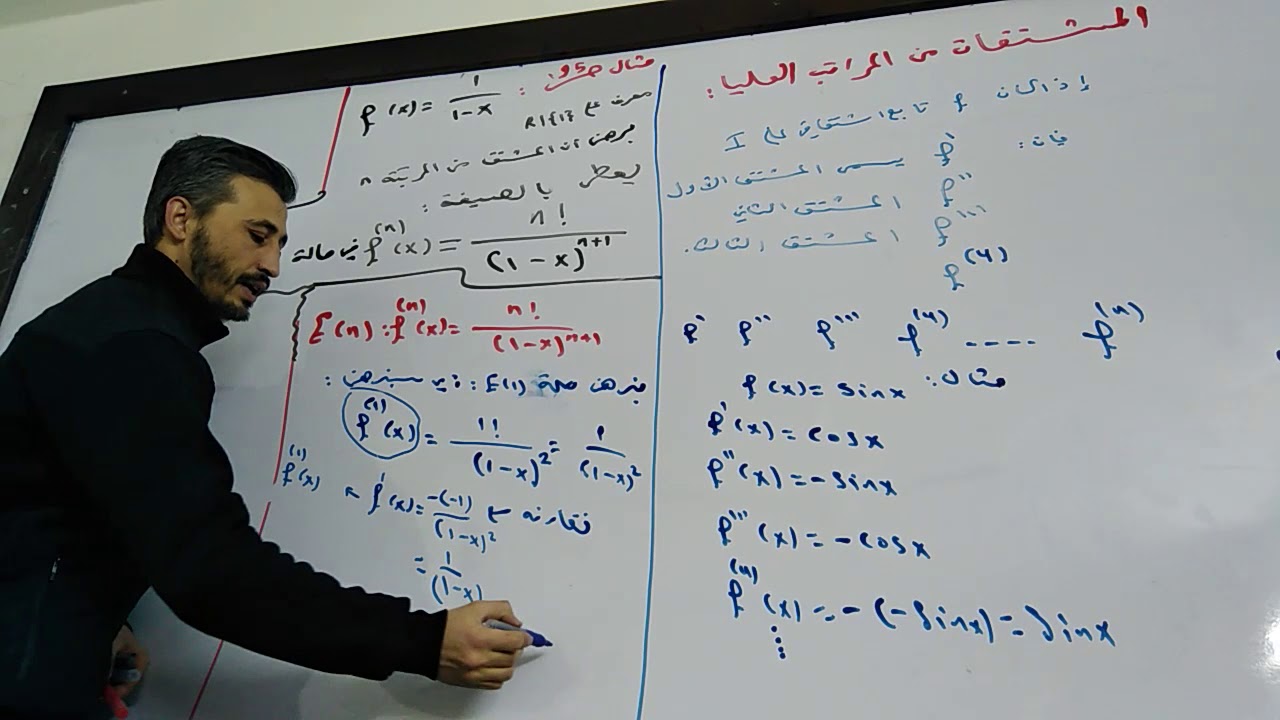 المشتقات من المراتب العليا:
إذا كان f تابع اشتقاقي على I
فإن:
f' يسمى المشتق الأول
f'' المشتق الثاني
f''' المشتق الثالث.
f^(4)
f' f'' f''' f^(4) ---- f^(n)
مثال: f(x) = sinx
f'(x) = cosx
f''(x) = -sinx
f'''(x) = -cosx
f^(4)(x) = -(-sinx) = sinx
⋮
مثال ص95:
f(x) = 1/(1-x) معرف على R\{1}
برهن أن المشتق من المرتبة n
يعطى بالصيغة:
f^(n)(x) = n!/(1-x)^(n+1) في حالة
E(n): f^(n)(x) = n!/(1-x)^(n+1)
نبرهن صحة E(1): سنبرهن:
f^(1)(x) = 1!/(1-x)^2 = 1/(1-x)^2
f^(1)(x)
f'(x) = -(-1)/(1-x)^2 نقارنه
= 1/(1-x)